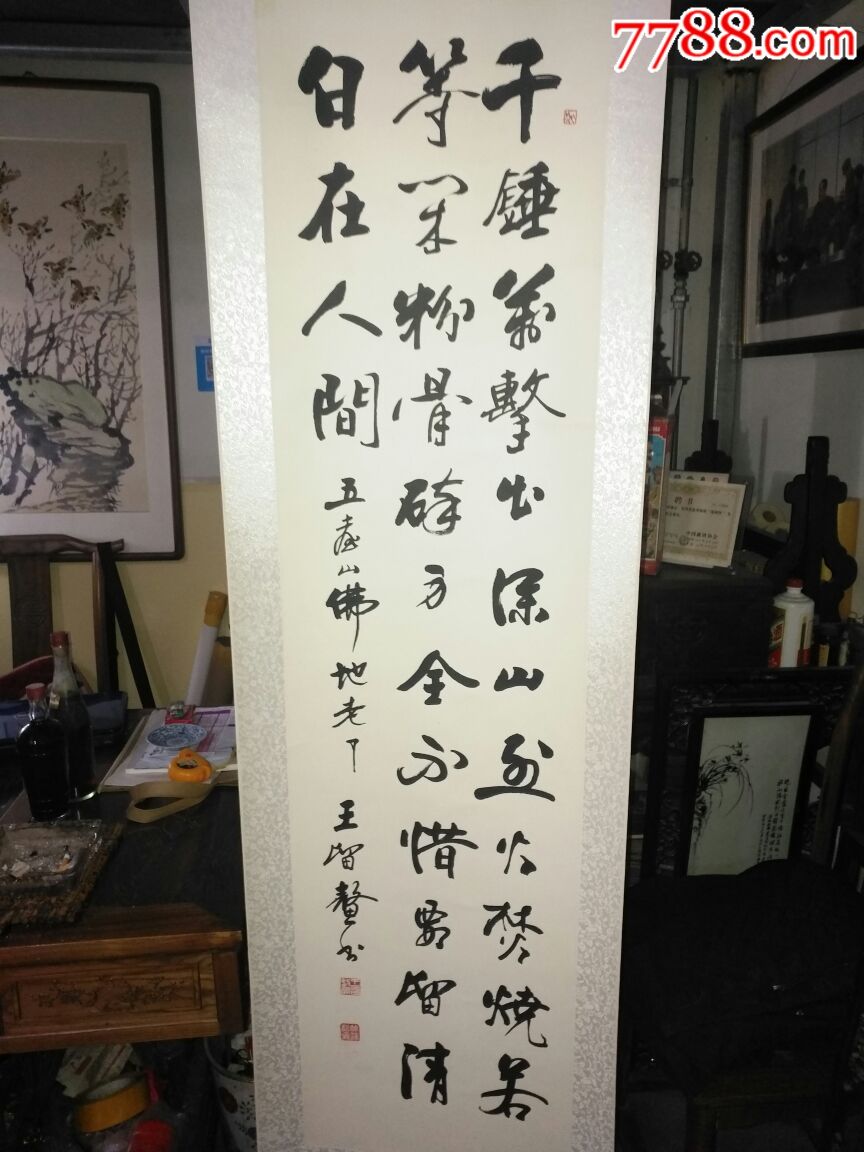 7788.com
千錘萬擊出深山烈火焚燒若
等閑粉骨碎身全不惜要留清
白在人間
五臺山佛地老
王留鰲書
聘书